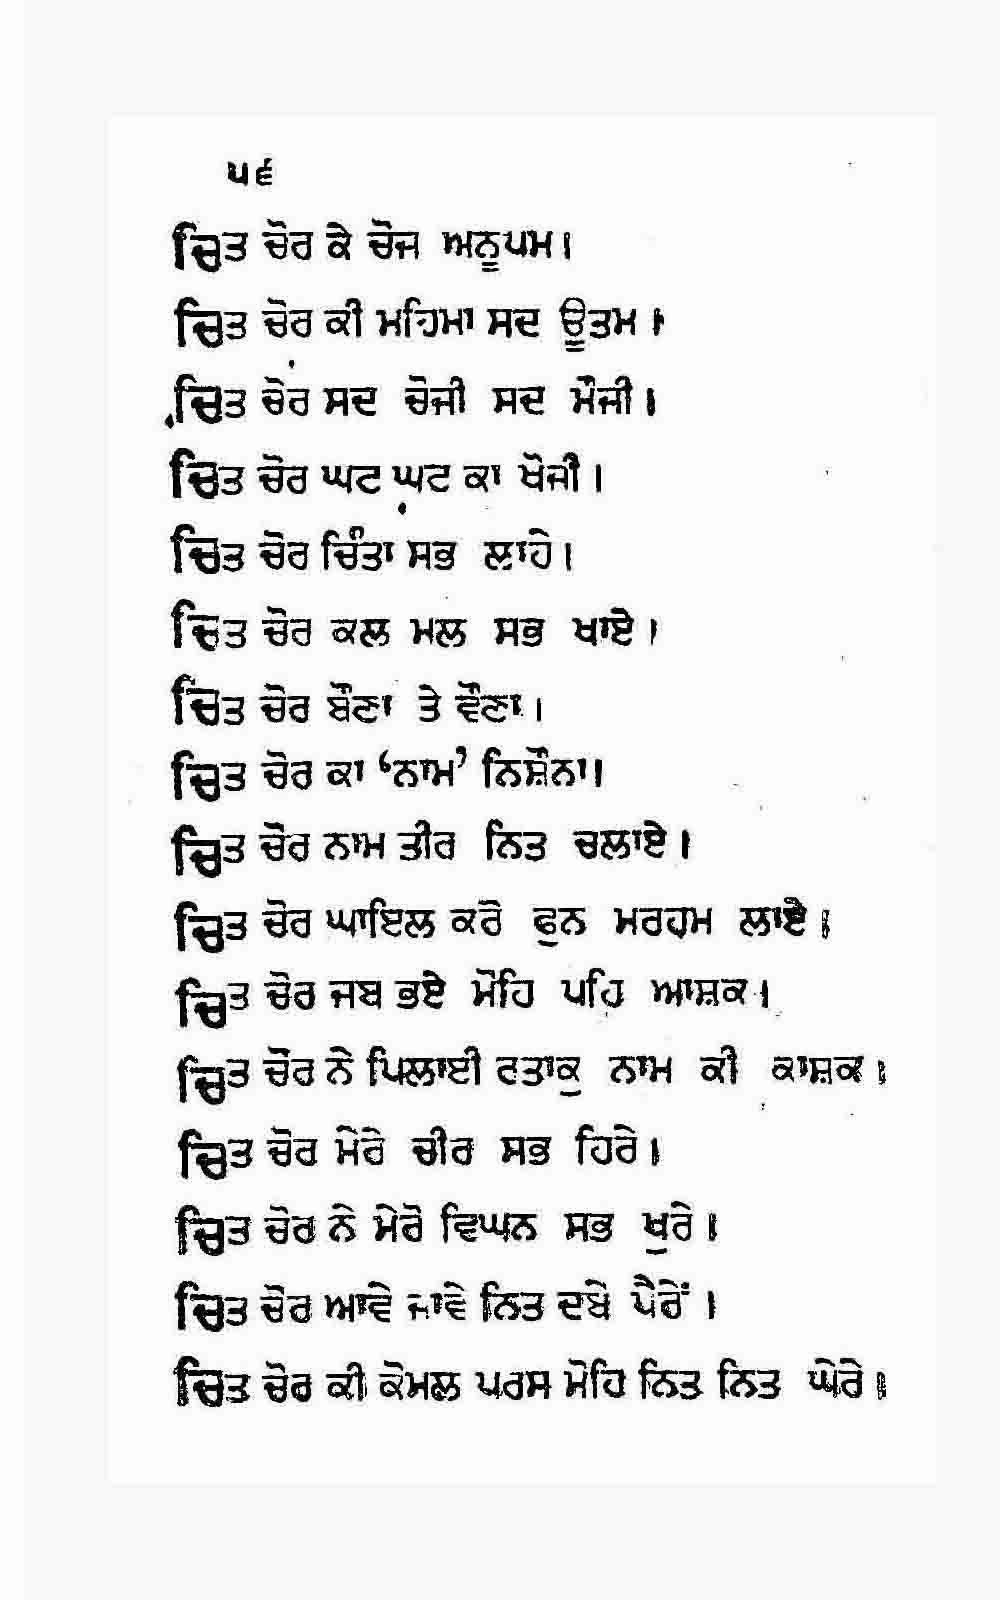 ੫੬
ਚਿਤ ਚੋਰ ਕੇ ਚੋਜ ਅਨੂਪਮ।
ਚਿਤ ਚੋਰ ਕੀ ਮਹਿਮਾ ਸਦ ਊਤਮ।
ਚਿਤ ਚੋਰ ਸਦ ਚੋਜੀ ਸਦ ਮੌਜੀ।
ਚਿਤ ਚੋਰ ਘਟ ਘਟ ਕਾ ਖੋਜੀ।
ਚਿਤ ਚੋਰ ਚਿੰਤਾ ਸਭ ਲਾਹੇ।
ਚਿਤ ਚੋਰ ਕਲ ਮਲ ਸਭ ਖਾਏ।
ਚਿਤ ਚੋਰ ਬੌਣਾ ਤੇ ਵੌਣਾ।
ਚਿਤ ਚੋਰ ਕਾ ‘ਨਾਮ’ ਨਿਸ਼ੌਨਾ।
ਚਿਤ ਚੋਰ ਨਾਮ ਤੀਰ ਨਿਤ ਚਲਾਏ।
ਚਿਤ ਚੋਰ ਘਾਇਲ ਕਰੋ ਫੁਨ ਮਰਹਮ ਲਾਏ।
ਚਿਤ ਚੋਰ ਜਬ ਭਏ ਮੋਹਿ ਪਹਿ ਆਸ਼ਕ।
ਚਿਤ ਚੋਰ ਨੇ ਪਿਲਾਈ ਰਤਾਕੁ ਨਾਮ ਕੀ ਕਾਸ਼ਕ।
ਚਿਤ ਚੋਰ ਮੇਰੇ ਚੀਰ ਸਭ ਹਿਰੇ।
ਚਿਤ ਚੋਰ ਨੇ ਮੇਰੋ ਵਿਘਨ ਸਭ ਖੁਰੇ।
ਚਿਤ ਚੋਰ ਆਵੇ ਜਾਵੇ ਨਿਤ ਦਬੇ ਪੈਰੇਂ।
ਚਿਤ ਚੋਰ ਕੀ ਕੋਮਲ ਪਰਸ ਮੋਹਿ ਨਿਤ ਨਿਤ ਘੇਰੇ।